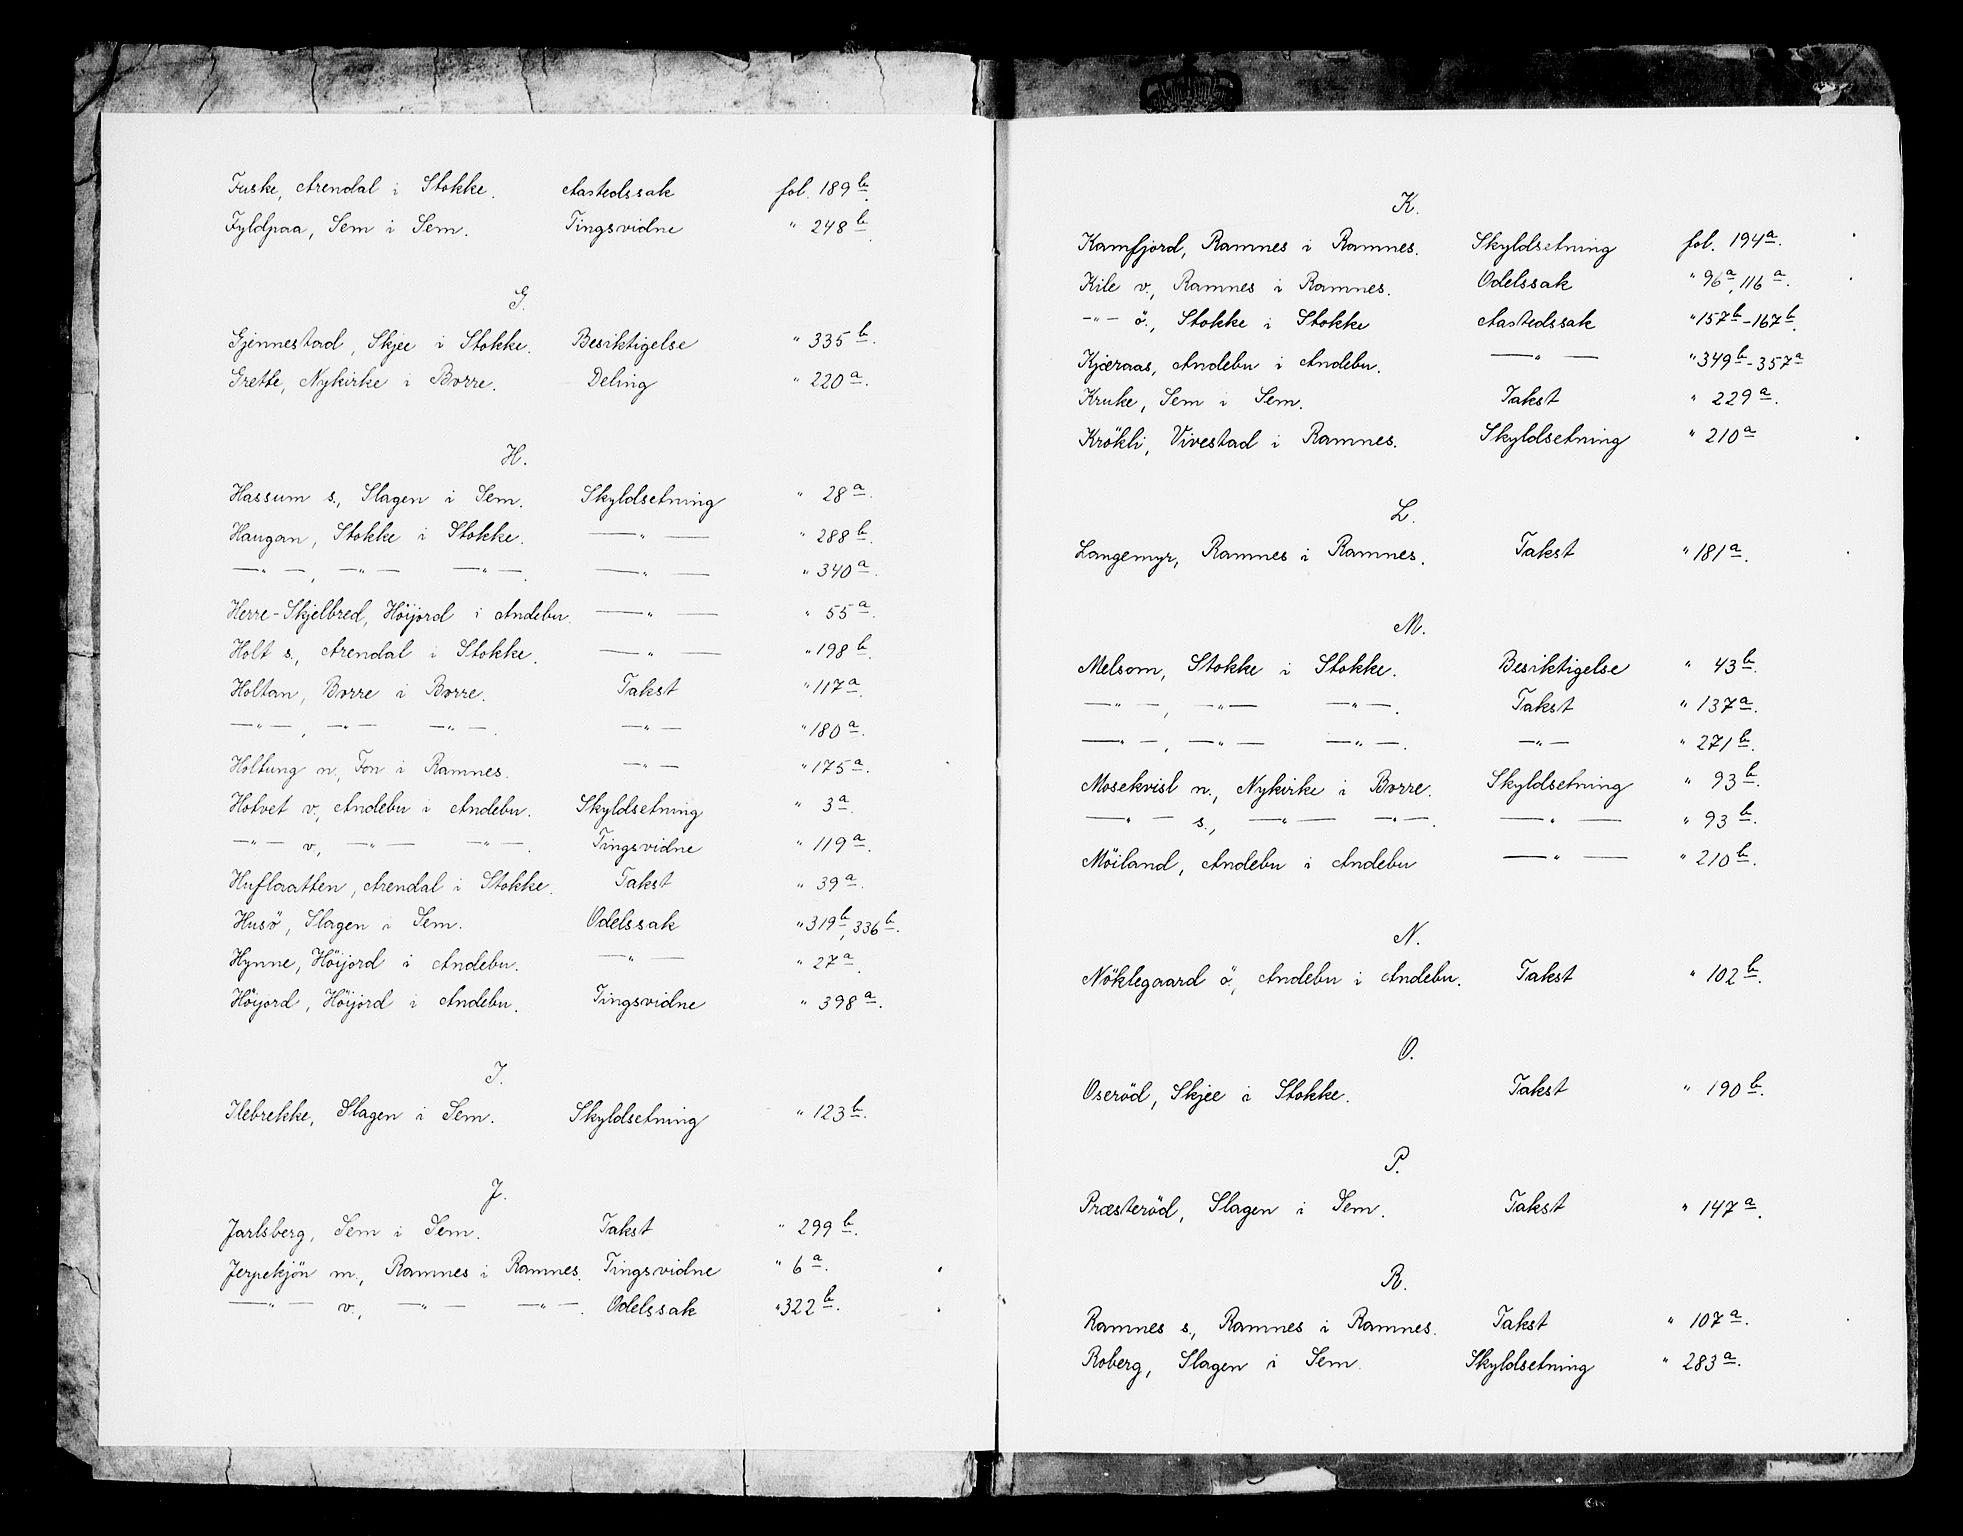 Fuske, Arendal i Stokke. Aastedssak fol. 189 b.
Fyldpaa, Sem i Sem. Tingsvidne " 248 b.
G.
Gjennestad, Skjee i Stokke. Besiktigelse " 335 b.
Grette, Nykirke i Borre. Deling " 220 a.
H.
Hassum s., Slagen i Sem. Skyldsetning " 28 a.
Haugan, Stokke i Stokke. —"— " 288 b.
—"—, —"— —"—. —"— " 340 a.
Herre-Skjelbred, Höijord i Andebu. —"— " 55 a.
Holt s., Arendal i Stokke. —"— " 198 b.
Holtan, Borre i Borre. Takst " 117 a.
—"—, —"— —"—. —"— " 180 a.
Holtung n., Fon i Ramnes. —"— " 175 a.
Hotvet v., Andebu i Andebu. Skyldsetning " 3 a.
—"— v., —"— —"—. Tingsvidne " 119 a.
Huflaatten, Arendal i Stokke. Takst " 39 a.
Husö, Slagen i Sem. Odelssak " 319 b, 336 b.
Hynne, Höijord i Andebu. —"— " 27 a.
Höijord, Höijord i Andebu. Tingsvidne " 398 a.
I.
Ilebrekke, Slagen i Sem. Skyldsetning " 123 b.
J.
Jarlsberg, Sem i Sem. Takst " 299 b.
Jerpekjön m., Ramnes i Ramnes. Tingsvidne " 6 a.
—"— v., —"— —"—. Odelssak " 322 b.
K.
Kamfjord, Ramnes i Ramnes. Skyldsetning fol. 194 a.
Kile v., Ramnes i Ramnes. Odelssak " 96 a, 116 a.
—"— ö., Stokke i Stokke Aastedssak " 157 b - 167 b.
Kjæraas, Andebu i Andebu. —"— " 349 b - 357 a
Kruke, Sem i Sem. Takst " 229 a.
Krökli, Vivestad i Ramnes. Skyldsetning " 210 a
L.
Langemyr, Ramnes i Ramnes. Takst " 181 a.
M.
Melsom, Stokke i Stokke. Besiktigelse " 43 b.
—"—, —"— —"—. Takst " 137 a.
—"—, —"— —"—. —"— " 271 b.
Mosekvisl n., Nykirke i Borre. Skyldsetning " 93 b.
—"— s., —"— —"—. —"— " 93 b.
Möiland, Andebu i Andebu —"— " 210 b.
N.
Nöklegaard ö., Andebu i Andebu. Takst " 102 b.
O.
Oseröd, Skjee i Stokke. Takst " 190 b.
P.
Præsteröd, Slagen i Sem. Takst " 147 a.
R.
Ramnes s., Ramnes i Ramnes. Takst " 107 a.
Roberg, Slagen i Sem. Skyldsetning " 283 a.